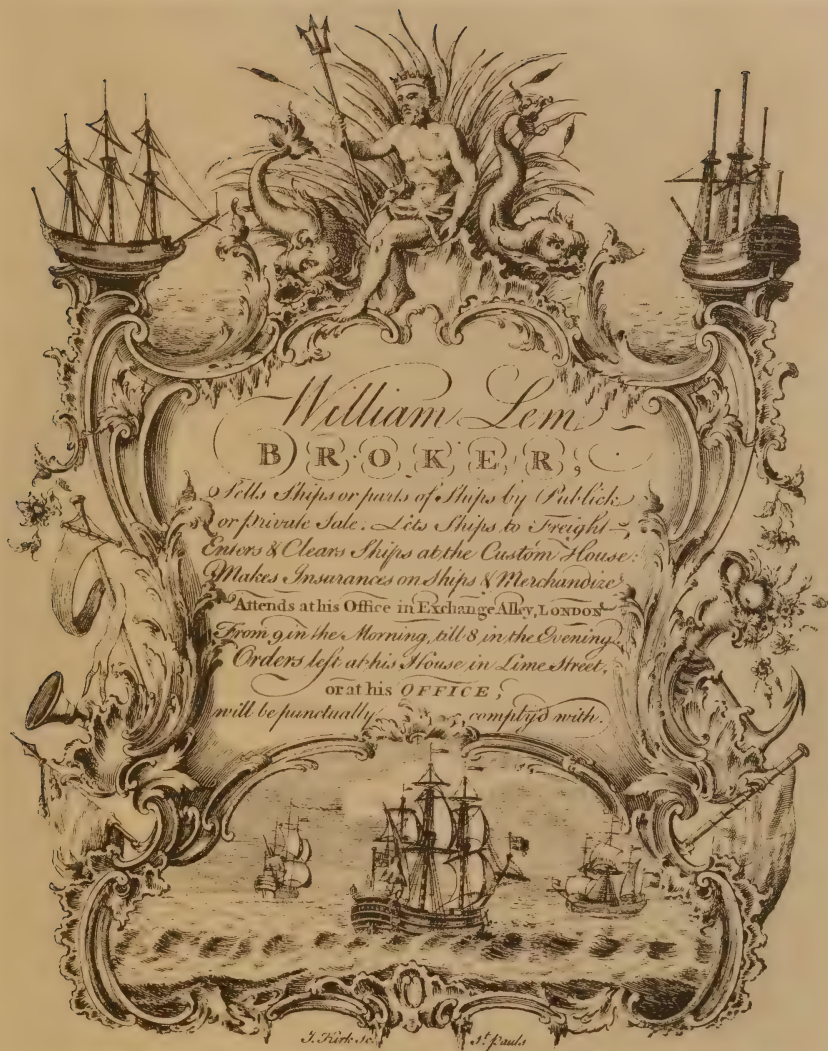 William Lem
BROKER,
Sells Ships or parts of Ships by Publick
or private Sale. Lets Ships to Freight
Enters & Clears Ships at the Custom House:
Makes Insurances on Ships & Merchandize
Attends at his Office in Exchange Alley, LONDON
From 9 in the Morning, till 8 in the Evening.
Orders left at his House in Lime Street,
or at his OFFICE,
will be punctually comply'd with.
J. Kirk sc. St. Pauls